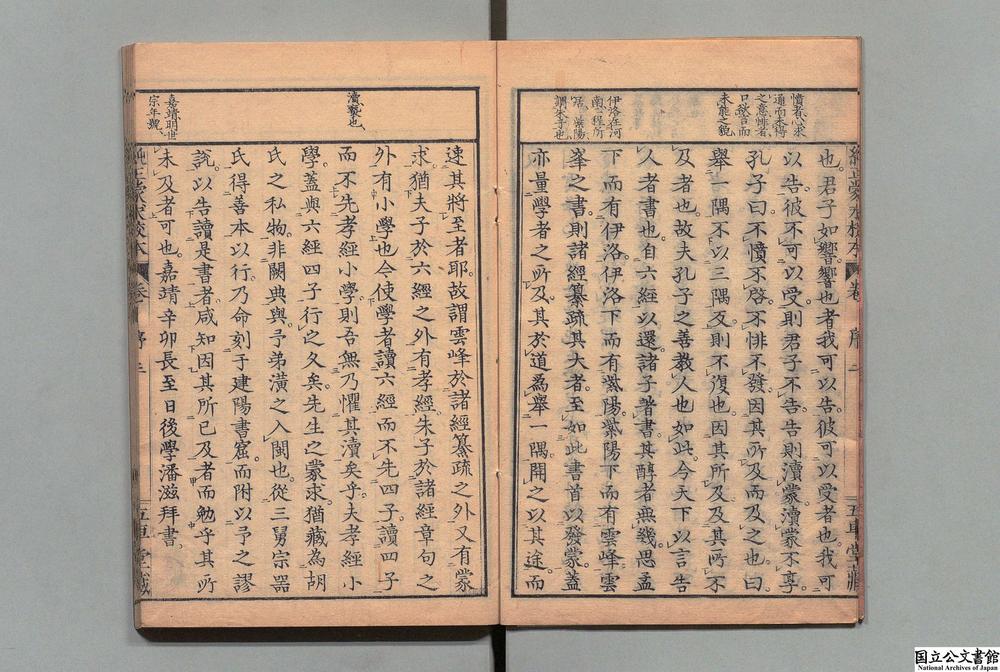 憤者心求
通而未得
之意悱者
口欲言而
未能之貌
伊洛在河
南二程所
居紫陽
謂朱子也
也君子如響響也者我可以告彼可以受者也我可
以告彼不可以受則君子不告告則瀆蒙瀆蒙不享
孔子曰不憤不啓不悱不發因其所及而及之也曰
舉一隅不以三隅反則不復也因其所及及其所不
及者也故夫孔子之善教人也如此今天下以言告
人者書也自六經以還諸子著書其醇者無幾思孟
下而有伊洛伊洛下而有紫陽紫陽下而有雲峰雲
峯之書則諸經纂疏其大者至如此書首以發蒙蓋
亦量學者之所及其於道爲舉一隅開之以其途而
序二
五車堂藏
瀆褻也
嘉靖明世
宗年號
速其將至者耶故謂雲峰於諸經纂疏之外又有蒙
求猶夫子於六經之外有孝經朱子於諸經章句之
外有小學也今使學者讀六經而不先四子讀四子
而不先孝經小學則吾無乃懼其瀆矣乎夫孝經小
學蓋與六經四子行之久矣先生之蒙求猶藏為胡
氏之私物非闕典與予弟潢之入閩也從三舅宗器
氏得善本以行乃命刻于建陽書窟而附以予之謬
說以告讀是書者咸知因其所已及者而勉乎其所
未及者可也嘉靖辛卯長至日後學潘滋拜書
純正蒙求校本
序三
五車堂藏
国立公文書館
National Archives of Japan